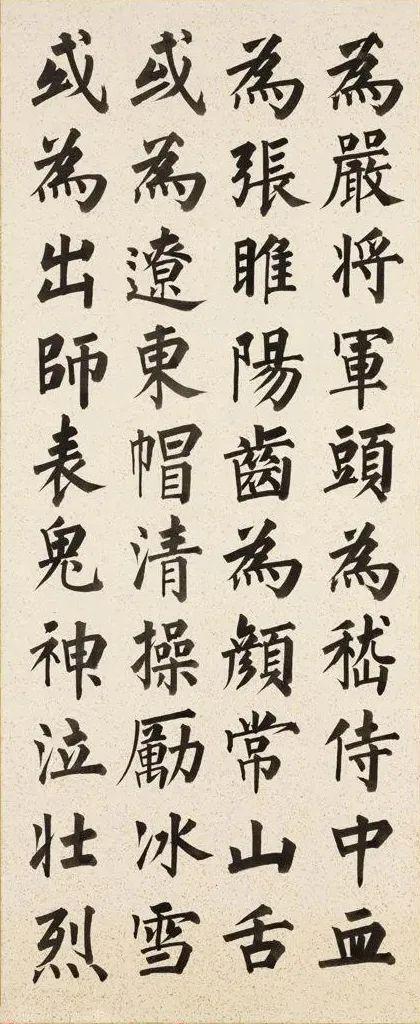 為嚴将軍頭為嵇侍中血
為張睢陽齒為顔常山舌
或為遼東帽清操勵冰雪
或為出師表鬼神泣壮烈